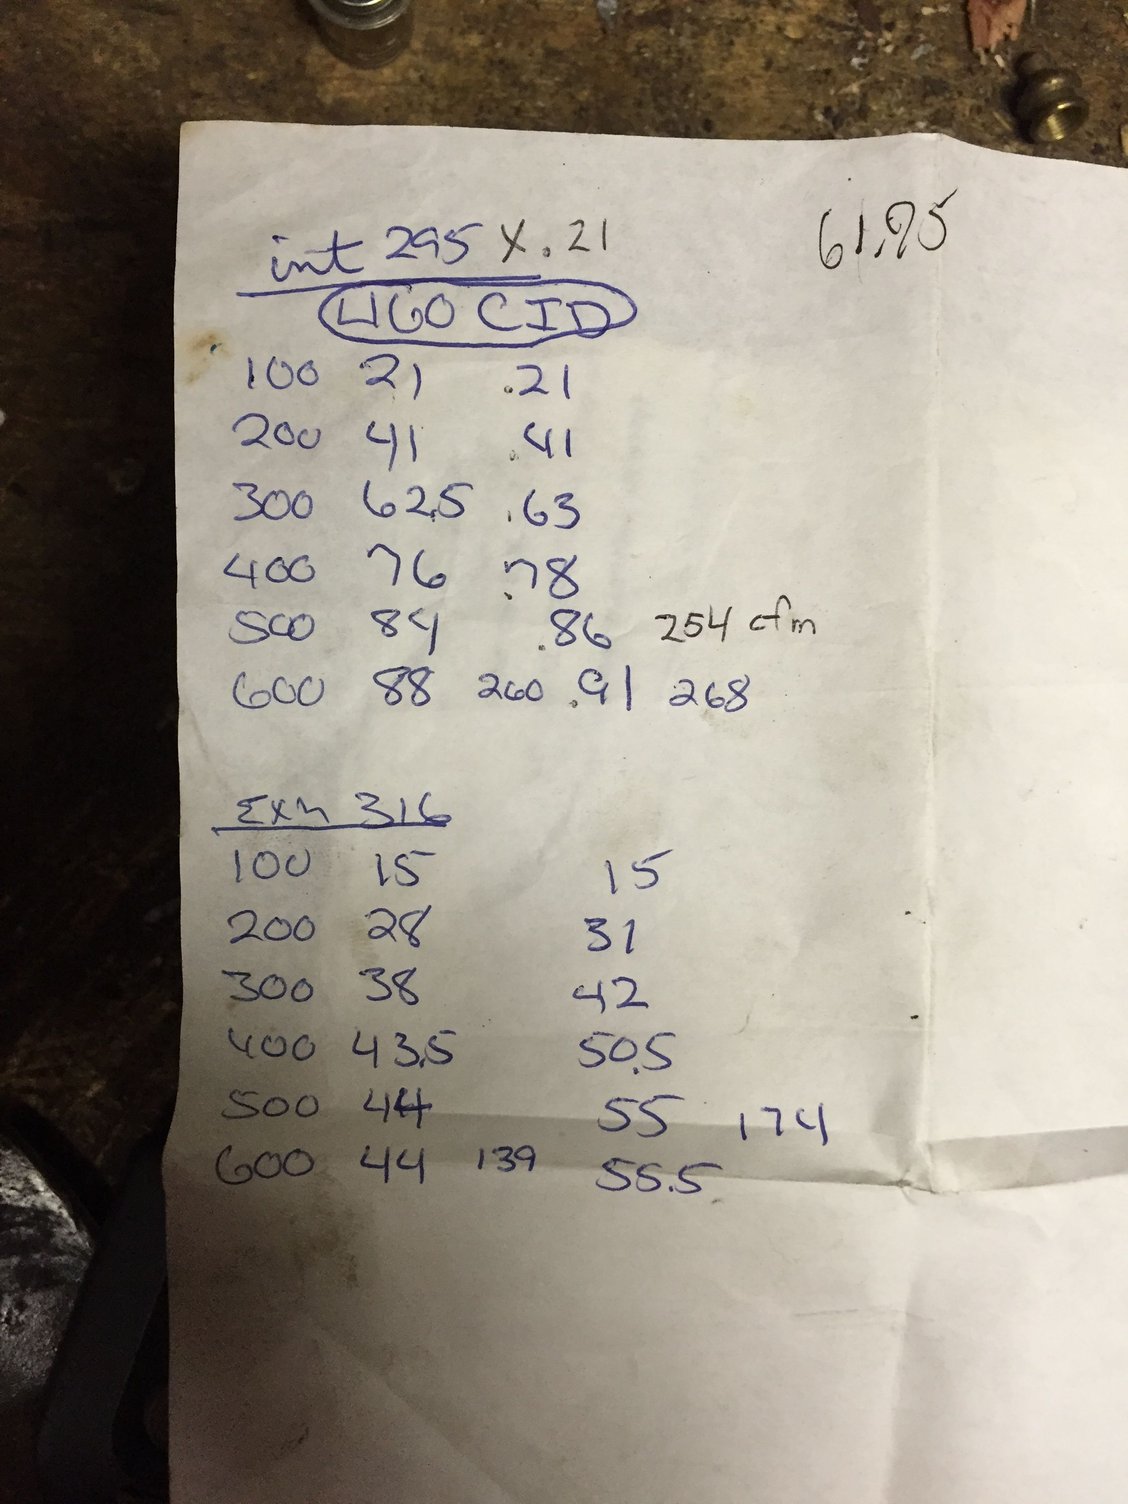 int 295 X .21
61.95
460 CID
100 21 .21
200 41 .41
300 62.5 .63
400 76 .78
500 84 .86 254 cfm
600 88 260 .91 268
Exh 316
100 15 15
200 28 31
300 38 42
400 43.5 50.5
500 44 55 174
600 44 139 55.5